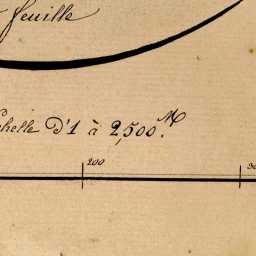 feuille
chelle D'1 à 2,500.M
200